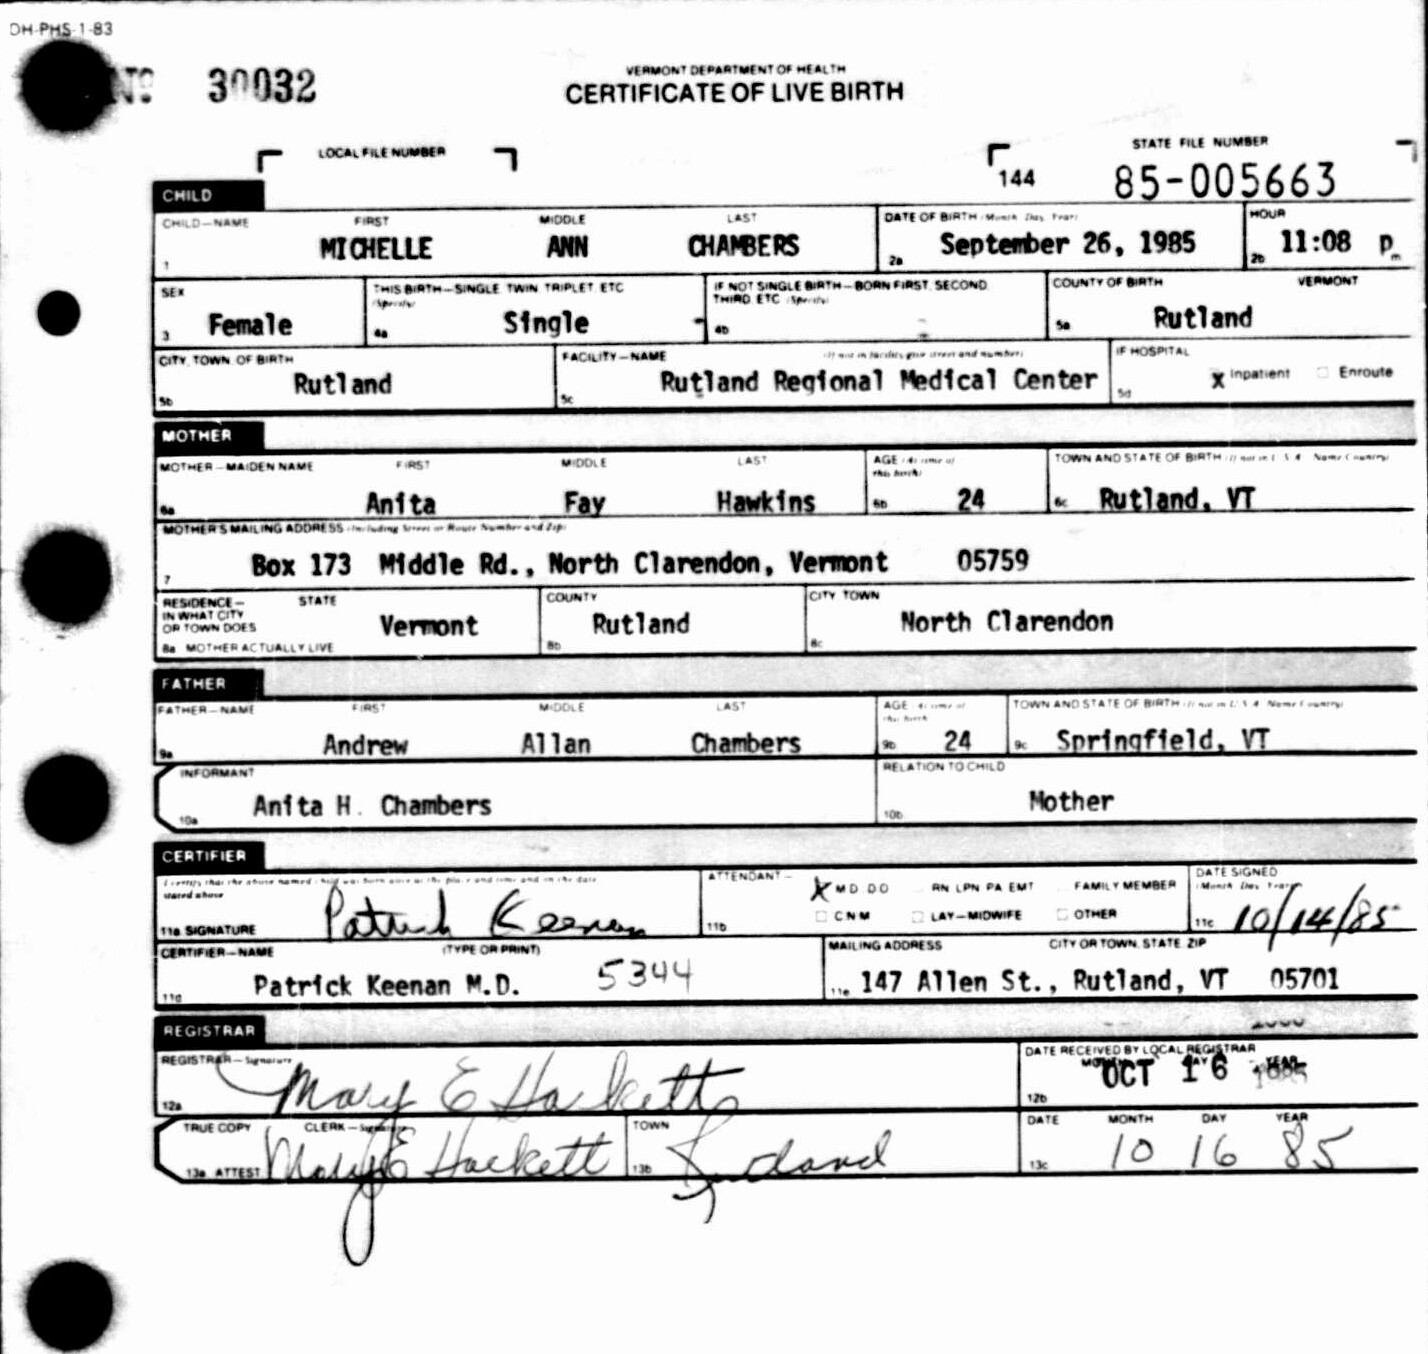 DH-PHS-1-83
No 30032
VERMONT DEPARTMENT OF HEALTH
CERTIFICATE OF LIVE BIRTH
LOCAL FILE NUMBER
STATE FILE NUMBER
144 85-005663
CHILD
CHILD—NAME FIRST MIDDLE LAST DATE OF BIRTH (Month, Day, Year) HOUR
1 MICHELLE ANN CHAMBERS 2a September 26, 1985 2b 11:08 p m
SEX THIS BIRTH—SINGLE, TWIN, TRIPLET, ETC. IF NOT SINGLE BIRTH—BORN FIRST, SECOND, COUNTY OF BIRTH VERMONT
(Specify) THIRD, ETC. (Specify)
3 Female 4a Single 4b 5a Rutland
CITY, TOWN, OF BIRTH FACILITY—NAME (If not in facility give street and number) IF HOSPITAL
5b Rutland 5c Rutland Regional Medical Center 5d X Inpatient Enroute
MOTHER
MOTHER—MAIDEN NAME FIRST MIDDLE LAST AGE (At time of this birth) TOWN AND STATE OF BIRTH (If not in U.S.A. Name Country)
6a Anita Fay Hawkins 6b 24 6c Rutland, VT
MOTHER'S MAILING ADDRESS (Including Street or Route Number and Zip)
7 Box 173 Middle Rd., North Clarendon, Vermont 05759
RESIDENCE— STATE COUNTY CITY TOWN
IN WHAT CITY
OR TOWN DOES Vermont Rutland North Clarendon
8a MOTHER ACTUALLY LIVE 8b 8c
FATHER
FATHER—NAME FIRST MIDDLE LAST AGE (At time of this birth) TOWN AND STATE OF BIRTH (If not in U.S.A. Name Country)
9a Andrew Allan Chambers 9b 24 9c Springfield, VT
INFORMANT RELATION TO CHILD
10a Anita H. Chambers 10b Mother
CERTIFIER
I certify that the above named child was born alive at the place and time and on the date ATTENDANT— X M.D. D.O. RN LPN PA EMT FAMILY MEMBER DATE SIGNED
stated above (Month, Day, Year)
11a SIGNATURE Patrick Keenan 11b C.N.M LAY—MIDWIFE OTHER 11c 10/14/85
CERTIFIER—NAME (TYPE OR PRINT) MAILING ADDRESS CITY OR TOWN, STATE, ZIP
11d Patrick Keenan M.D. 5344 11e 147 Allen St., Rutland, VT 05701
REGISTRAR
REGISTRAR—Signature DATE RECEIVED BY LOCAL REGISTRAR
MONTH DAY YEAR
12a Mary E Hackett 12b OCT 16 1985
TRUE COPY CLERK—Signature TOWN DATE MONTH DAY YEAR
13a ATTEST Mary E Hackett 13b Rutland 13c 10 16 85